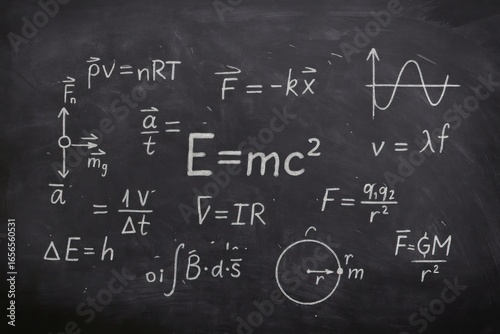 p⃗v=nRT
F⃗ = -kx⃗
F⃗n
a⃗/t =
E=mc²
v = λf
m⃗g
a⃗
= 1V/Δt
V⃗=IR
F = q₁q₂/r²
ΔE=h
∫B⃗·d·s⃗
r
r m
F⃗=GM/r²
Adobe Stock | #1656560531